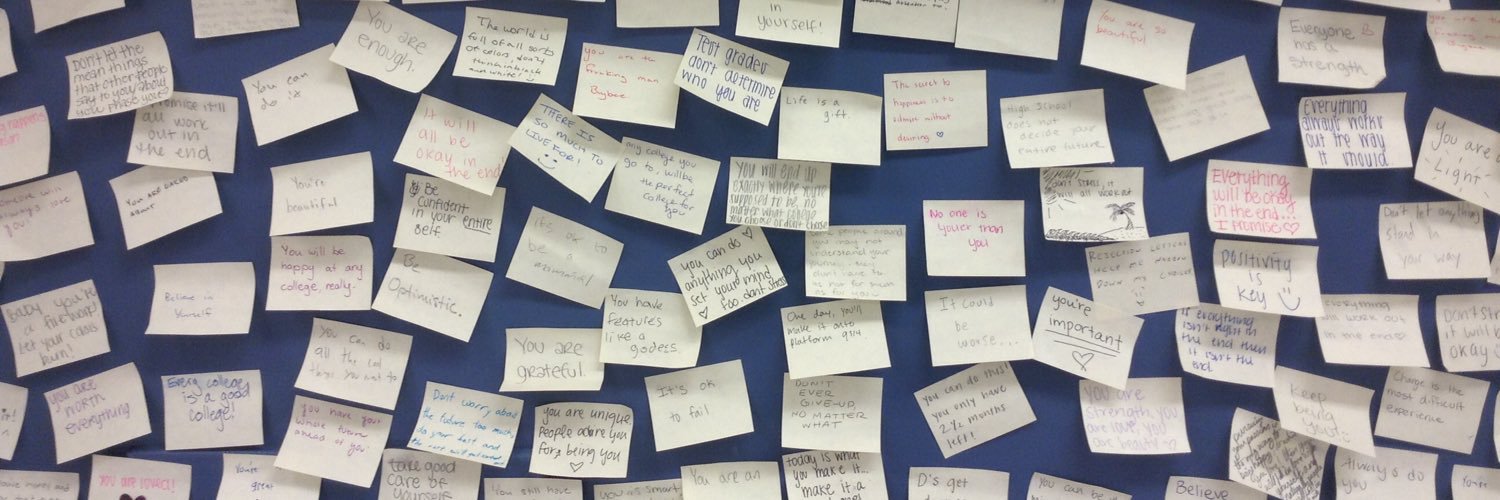 in
yourself!
You are
enough.
The world is
full of all sorts
of colors, don't
think in black
and white!
You are so
beautiful
Everyone
has a
strength
Don't let the
mean things
that other people
say to you/about
you phase you!
You can
do it
you are the
freaking man
Bugbee
Test grades
don't determine
who you are
Life is a
gift.
The secret to
happiness is to
without
desiring
High School
does not
decide your
entire future
Everything
always works
out the way
it should.
You are
-Light-
Promise it'll
all work
out in
the end
It will
all be
okay in
the end!
THERE IS
SO MUCH TO
LIVE FOR!
any college you
go to, will be
the perfect
college for
you
You will end up
exactly where you're
supposed to be, no
matter what college
you choose or don't choose
don't stress, it
will all work out
Everything
will be okay
in the end...
I promise
someone will
always love
you
You're
beautiful
Be
Confident
in your entire
self.
it's ok to
be a
No one is
youer than
you
people around
you may not
understand your
journey, they
don't have to
its not for them
its for you
Don't let anything
stand in
your way
You will be
happy at any
college, really.
Be
Optimistic.
you can do
anything you
set your mind
too. dont stress
REJECTION LETTERS
HELP ME NARROW
DOWN MY CHOICES
positivity
is
key
Believe in
Yourself
Baby you're
a firework
Let your colors
burn!
You have
features
like a
godess
One day, you'll
make it onto
platform 9 3/4
It could
be
worse...
you're
important
if everything
isn't right in
the end then
it isn't the
end.
everything
will work out
in the end
Don't s
it will b
okay
You can do
all the
things you want to
You are
grateful.
you are
worth
everything
Every college
is a good
college!
You have your
whole future
ahead of you!
Dont worry about
the future too much,
do your best and
the rest will
you are unique.
People adore you
for being you
It's ok
to fail
DON'T
EVER
GIVE-UP,
NO MATTER
WHAT
you can do this!
you only have
2 1/2 months
left!
You are
strength, you
are love, you
are beauty
Keep
being
you
Change is the
most difficult
experience.
You are loved!
You're
great
take good
care of
yourself
You still have
you are smart
You are an
today is what
you make it...
make it a
D's get
You can be
Believe
Always do